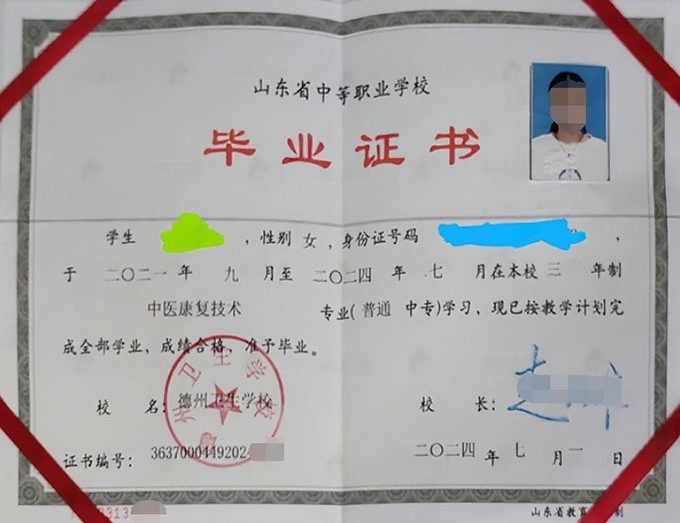 山东省中等职业学校
毕业证书
学生 ，性别 女 ，身份证号码 ，
于 二〇二一 年 九 月至 二〇二四 年 七 月在本校 三 年制
中医康复技术 专业( 普通 中专)学习，现已按教学计划完
成全部学业，成绩合格，准予毕业。
校 名：德州卫生学校
州卫生学校
校 长：
证书编号：3637000449202
二〇二四 年 七 月 一 日
3313
山东省教育 制